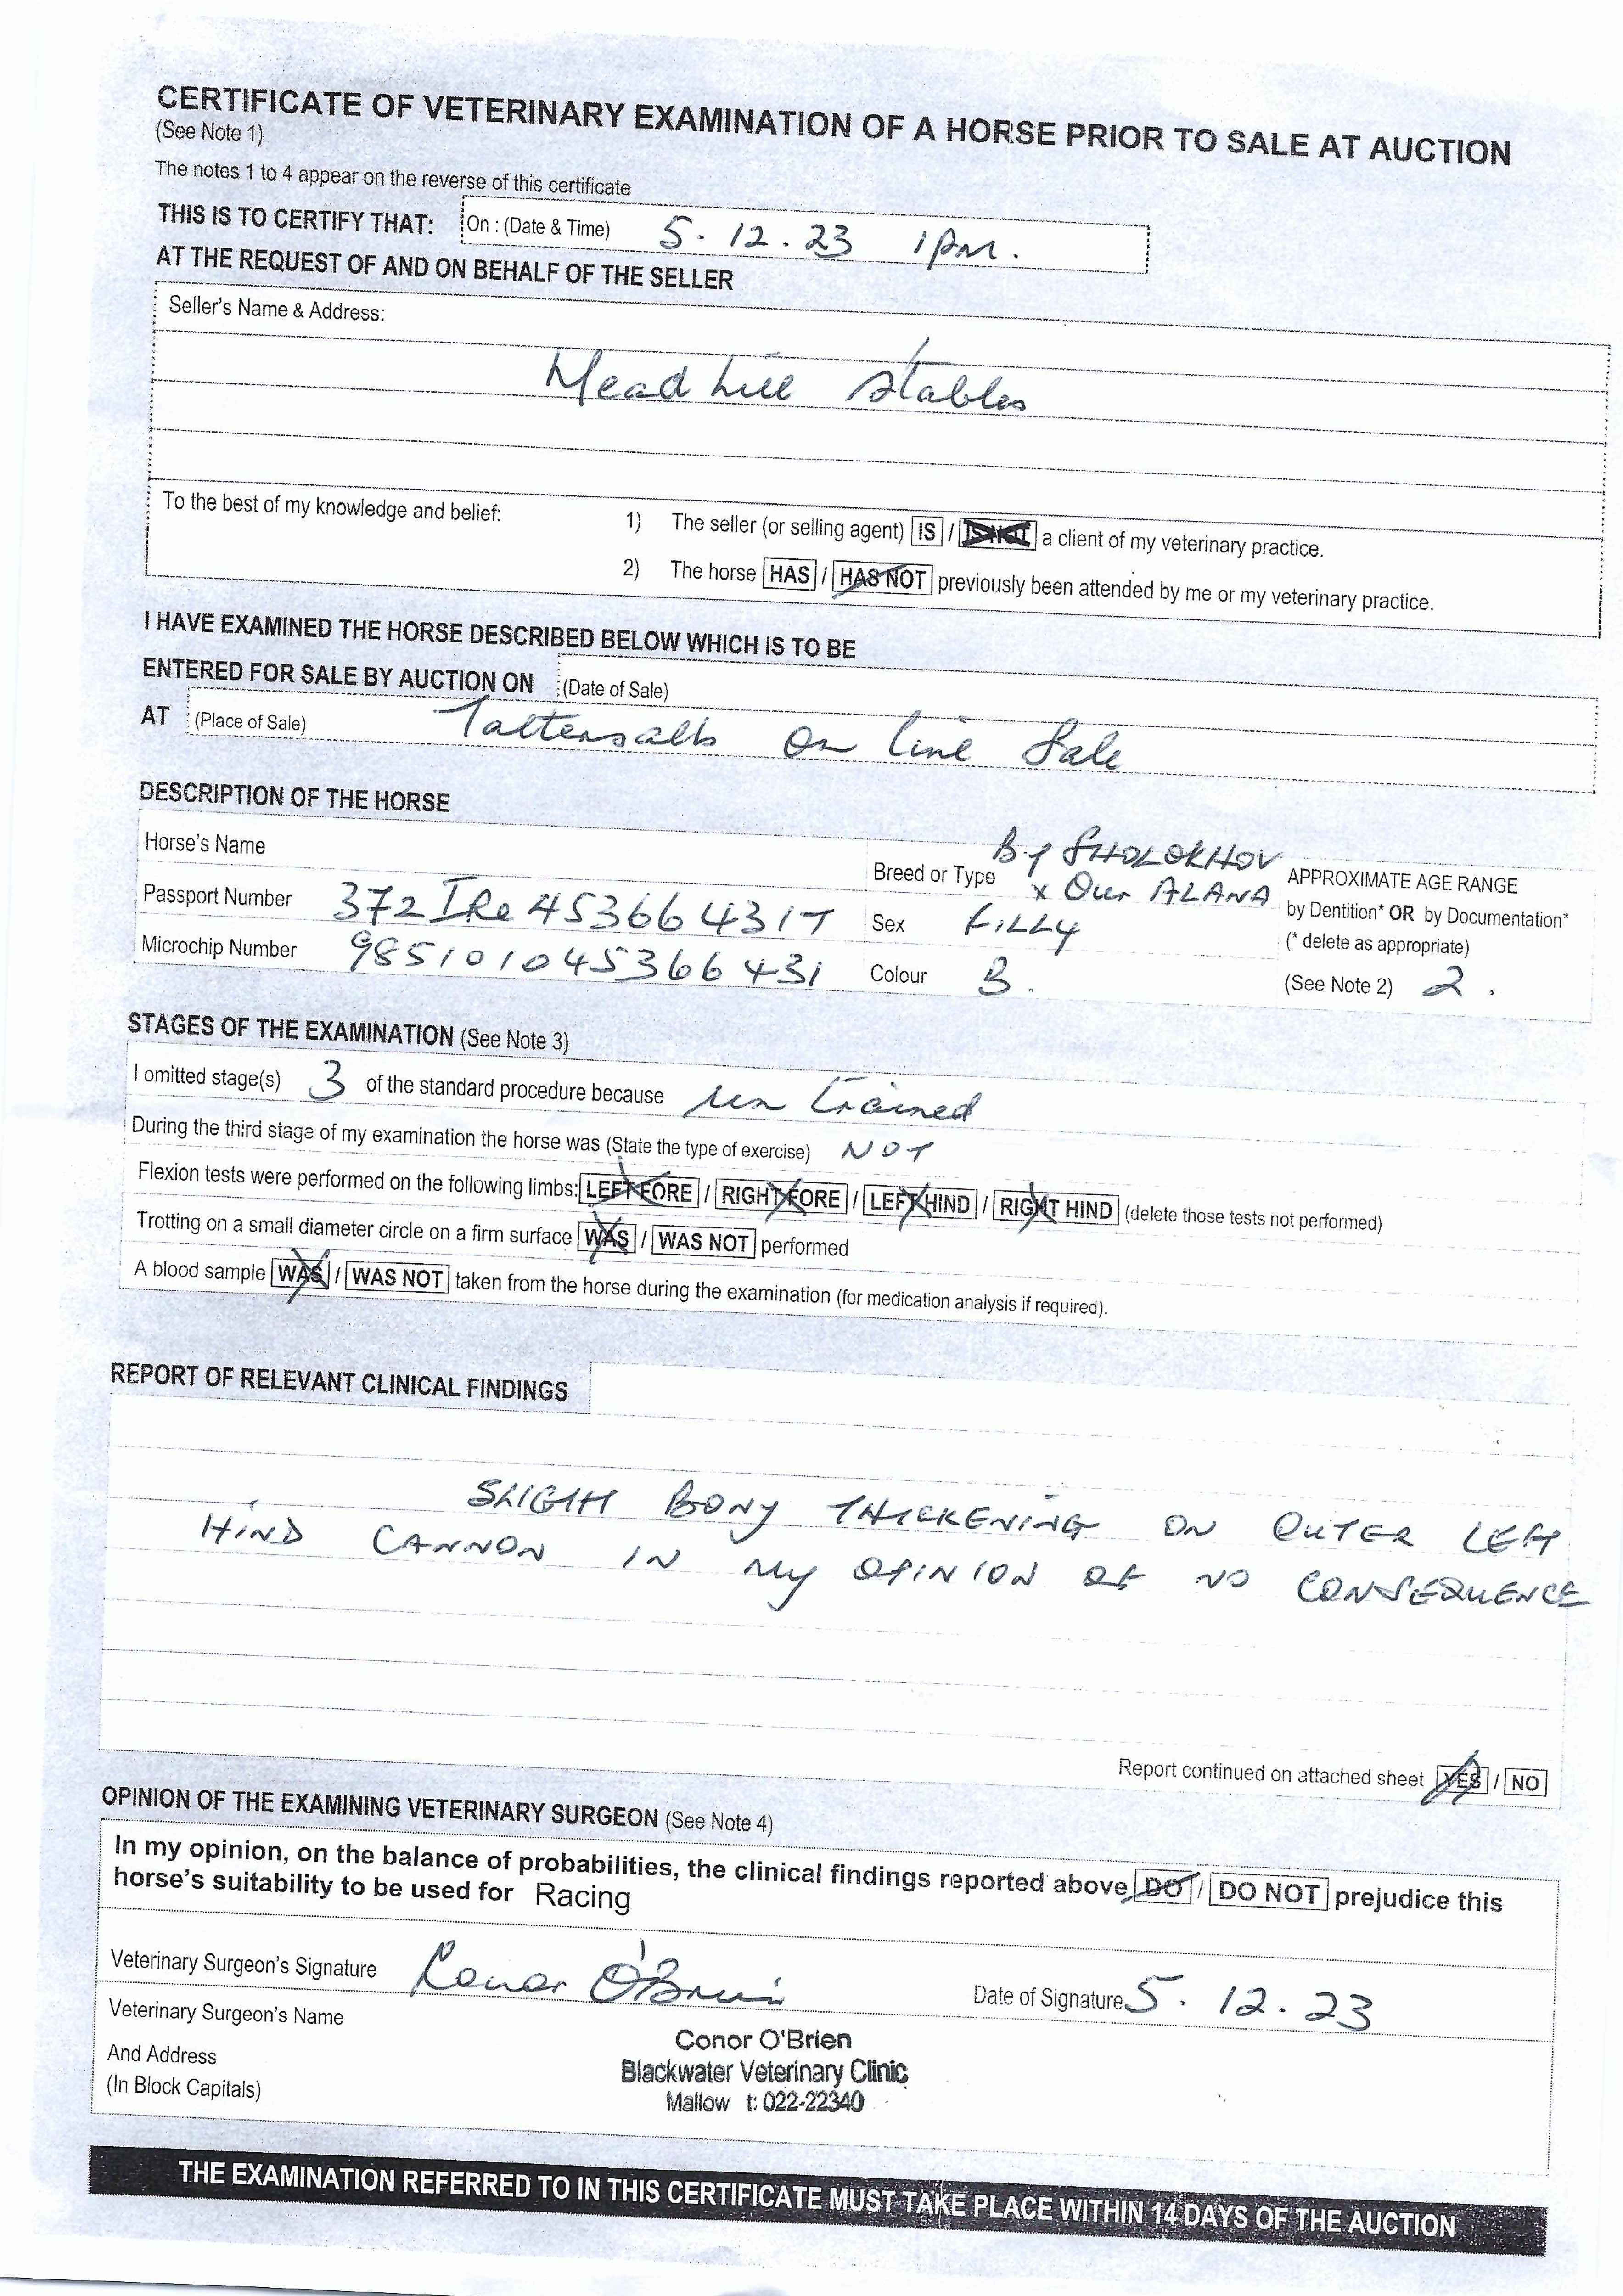 CERTIFICATE OF VETERINARY EXAMINATION OF A HORSE PRIOR TO SALE AT AUCTION
(See Note 1)
The notes 1 to 4 appear on the reverse of this certificate
THIS IS TO CERTIFY THAT: On : (Date & Time) 5.12.23 1PM.
AT THE REQUEST OF AND ON BEHALF OF THE SELLER
Seller's Name & Address:
Mead hill Stables
To the best of my knowledge and belief: 1) The seller (or selling agent) IS / IS NOT a client of my veterinary practice.
2) The horse HAS / HAS NOT previously been attended by me or my veterinary practice.
I HAVE EXAMINED THE HORSE DESCRIBED BELOW WHICH IS TO BE
ENTERED FOR SALE BY AUCTION ON (Date of Sale)
AT (Place of Sale) Tattersalls on line Sale
DESCRIPTION OF THE HORSE
Horse's Name
Breed or Type By SHOLOKHOV
x Our ALANA
APPROXIMATE AGE RANGE
by Dentition* OR by Documentation*
(* delete as appropriate)
(See Note 2) 2.
Passport Number 372IRe45366431T Sex FILLY
Microchip Number 985101045366431 Colour B.
STAGES OF THE EXAMINATION (See Note 3)
I omitted stage(s) 3 of the standard procedure because un trained
During the third stage of my examination the horse was (State the type of exercise) NOT
Flexion tests were performed on the following limbs: LEFT FORE / RIGHT FORE / LEFT HIND / RIGHT HIND (delete those tests not performed)
Trotting on a small diameter circle on a firm surface WAS / WAS NOT performed
A blood sample WAS / WAS NOT taken from the horse during the examination (for medication analysis if required).
REPORT OF RELEVANT CLINICAL FINDINGS
SLIGHT BONY THICKENING ON OUTER LEFT
HIND CANNON IN MY OPINION OF NO CONSEQUENCE
Report continued on attached sheet YES / NO
OPINION OF THE EXAMINING VETERINARY SURGEON (See Note 4)
In my opinion, on the balance of probabilities, the clinical findings reported above DO / DO NOT prejudice this
horse's suitability to be used for Racing
Veterinary Surgeon's Signature Conor O'Brien Date of Signature 5.12.23
Veterinary Surgeon's Name
And Address
(In Block Capitals)
Conor O'Brien
Blackwater Veterinary Clinic
Mallow t: 022-22340
THE EXAMINATION REFERRED TO IN THIS CERTIFICATE MUST TAKE PLACE WITHIN 14 DAYS OF THE AUCTION